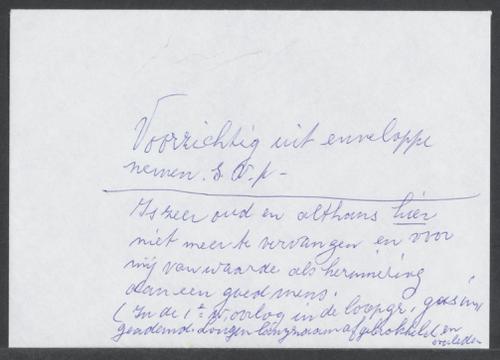 Voorzichtig uit enveloppe
nemen. S.V.p -
Is zeer oud en althans hier
niet meer te vervangen en voor
mij van waarde als herinnering
aan een goed mens.
(In de 1e W. oorlog in de loopgr. gas in/
geademd. longen langzaam afgebrokkeld en
overleden